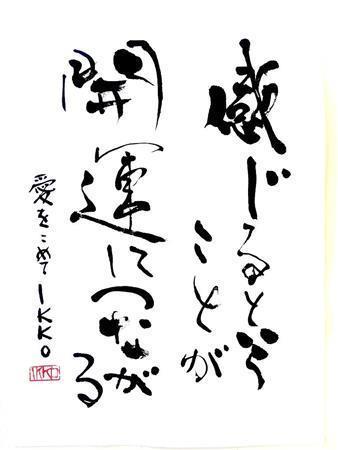 感じるとう
ことが
開運に
つながる
愛をこめてIKKO
IKKO